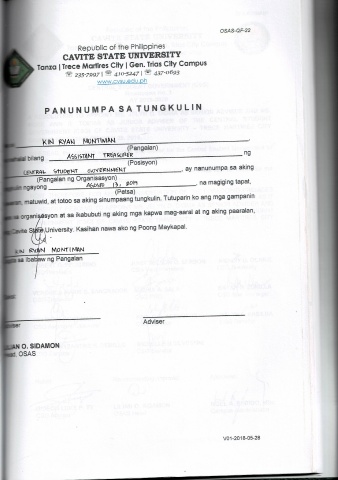 OSAS-QF-22
Republic of the Philippines
CAVITE STATE UNIVERSITY
Tanza | Trece Martires City | Gen. Trias City Campus
☏ 235-7997 | ☏ 410-5247 | ☏ 437-0693
www.cvsu.edu.ph
PANUNUMPA SA TUNGKULIN
KIN RYAN MONTIMAN
(Pangalan)
bilang ASSISTANT TREASURER ng
(Posisyon)
CENTRAL STUDENT GOVERNMENT, ay nanunumpa sa aking
(Pangalan ng Organisasyon)
ngayong AGOSTO 13, 2019, na magiging tapat,
(Petsa)
matuwid, at totoo sa aking sinumpaang tungkulin. Tutuparin ko ang mga gampanin
sa organisasyon at sa ikabubuti ng aking mga kapwa mag-aaral at ng aking paaralan,
Cavite State University. Kasihan nawa ako ng Poong Maykapal.
KIN RYAN MONTIMAN
sa Ibabaw ng Pangalan
Adviser
SIDAMON
OSAS
V01-2018-05-28